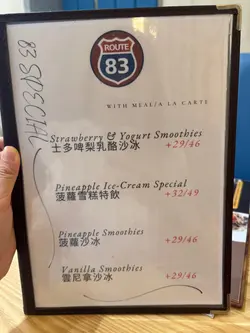 ROUTE
83
83 SPECIAL
WITH MEAL/A LA CARTE
Strawberry & Yogurt Smoothies
士多啤梨乳酪沙冰 +29/46
Pineapple Ice-Cream Special
菠蘿雪糕特飲 +32/49
Pineapple Smoothies
菠蘿沙冰 +29/46
Vanilla Smoothies
雲尼拿沙冰 +29/46